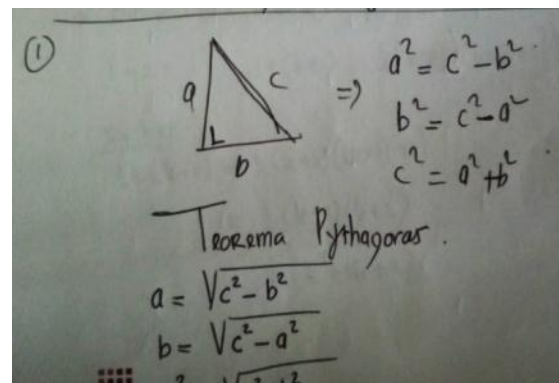 ①
a c b
⇒ a² = c² - b²
b² = c² - a²
c² = a² + b²
Teorema Pythagoras.
a = √c² - b²
b = √c² - a²